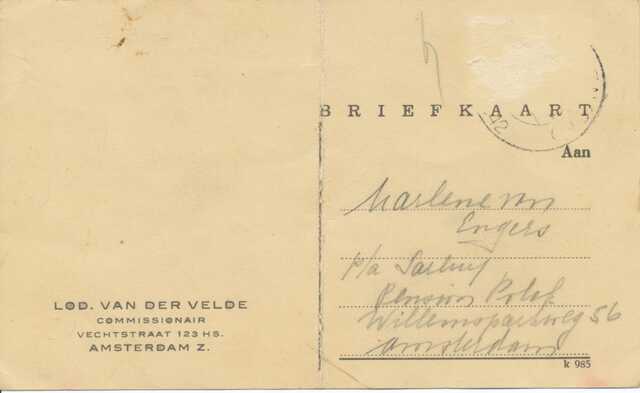 BRIEFKAART
Aan
Marlene von
Engers
p/a
Pension Polak
Willemsparkweg 56
Amsterdam
k 985
LOD. VAN DER VELDE
COMMISSIONAIR
VECHTSTRAAT 123 HS.
AMSTERDAM Z.